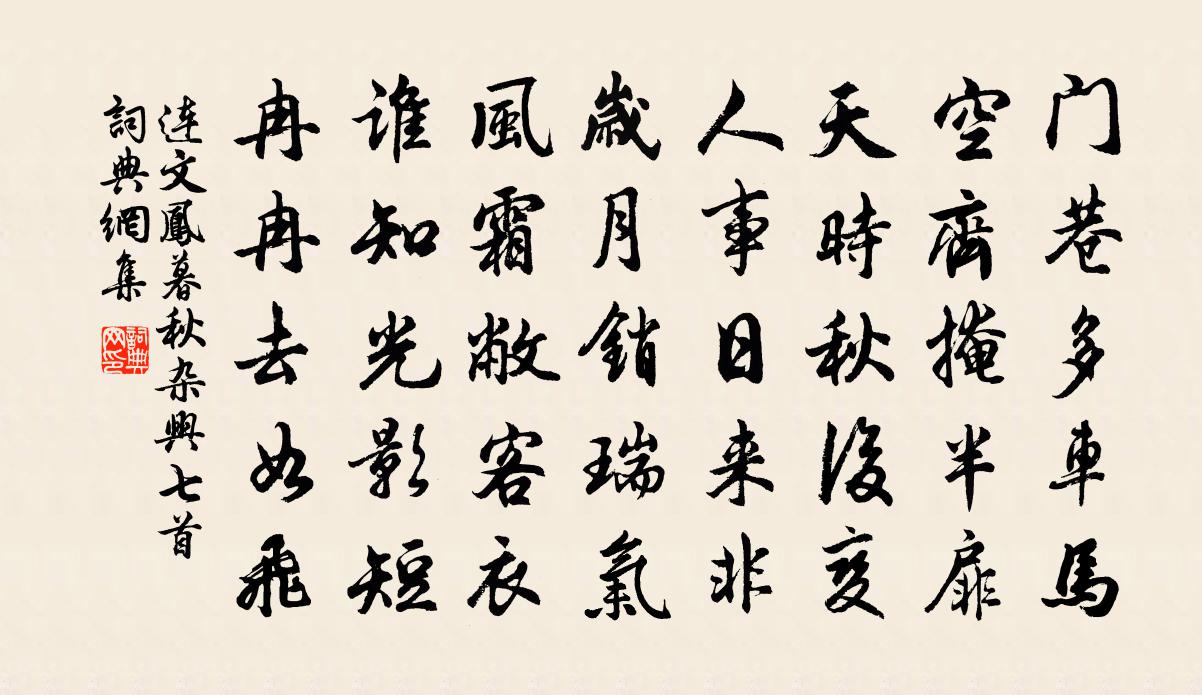 门巷多車馬
空齋掩半扉
天時秋後变
人事日来非
歲月銷瑞氣
風霜敝客衣
誰知光影短
冉冉去如飛
連文鳳暮秋杂興七首
詞典網集
詞典
网印